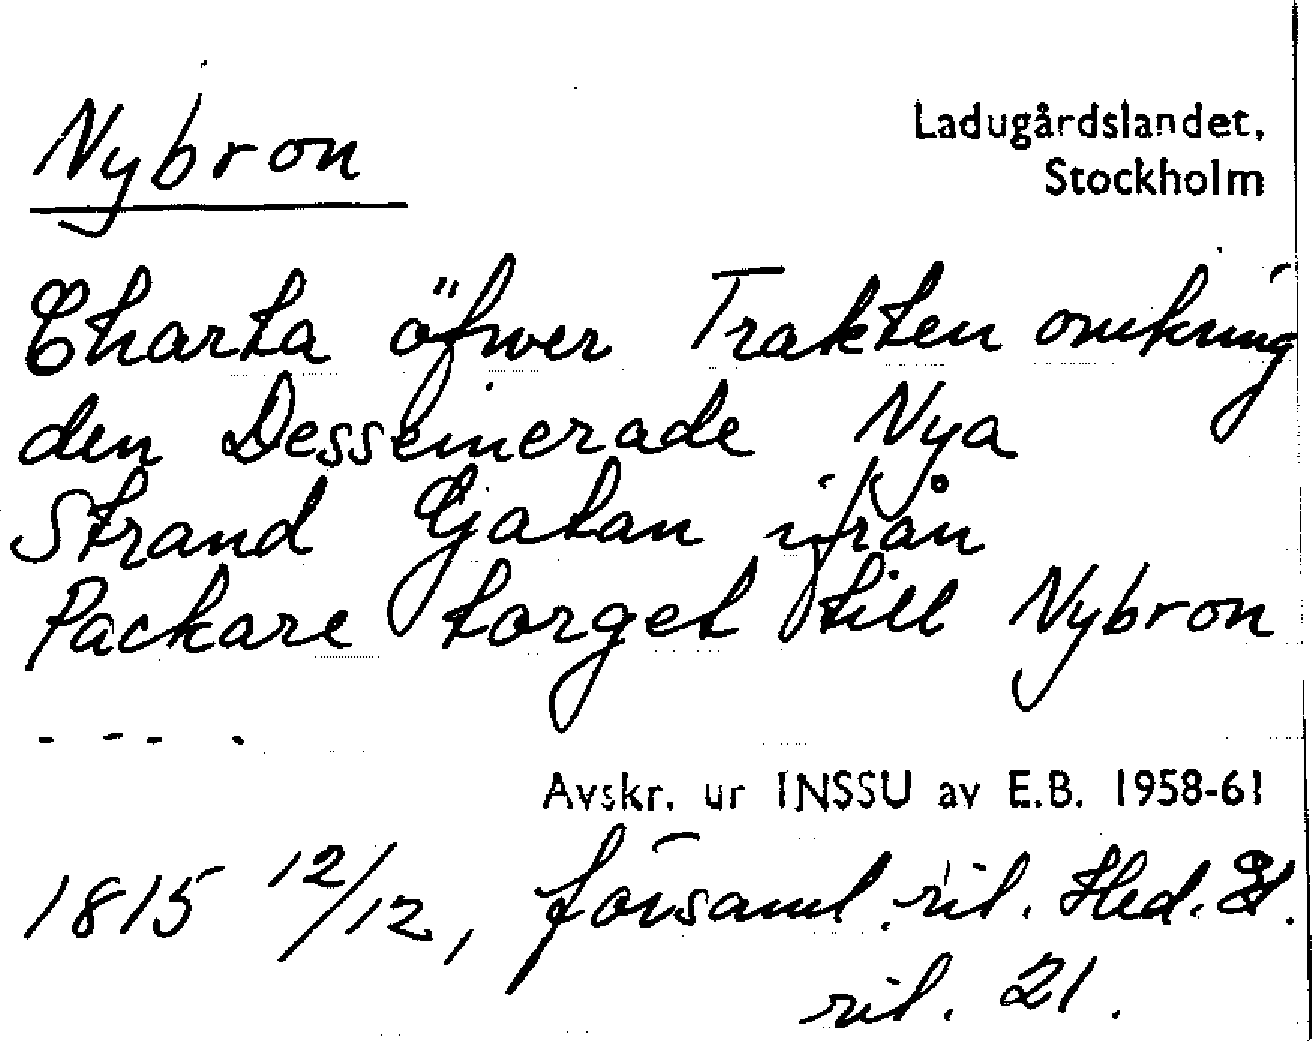 Nybron
Ladugårdslandet,
Stockholm
Charta öfwer Trakten omkring
den Desseinerade Nya
Strand Gatan ifrån
Packare torget till Nybron
- - - -
Avskr. ur INSSU av E.B. 1958-61
1815 12/12, församl. rit. Hed. El.
rit. 21.